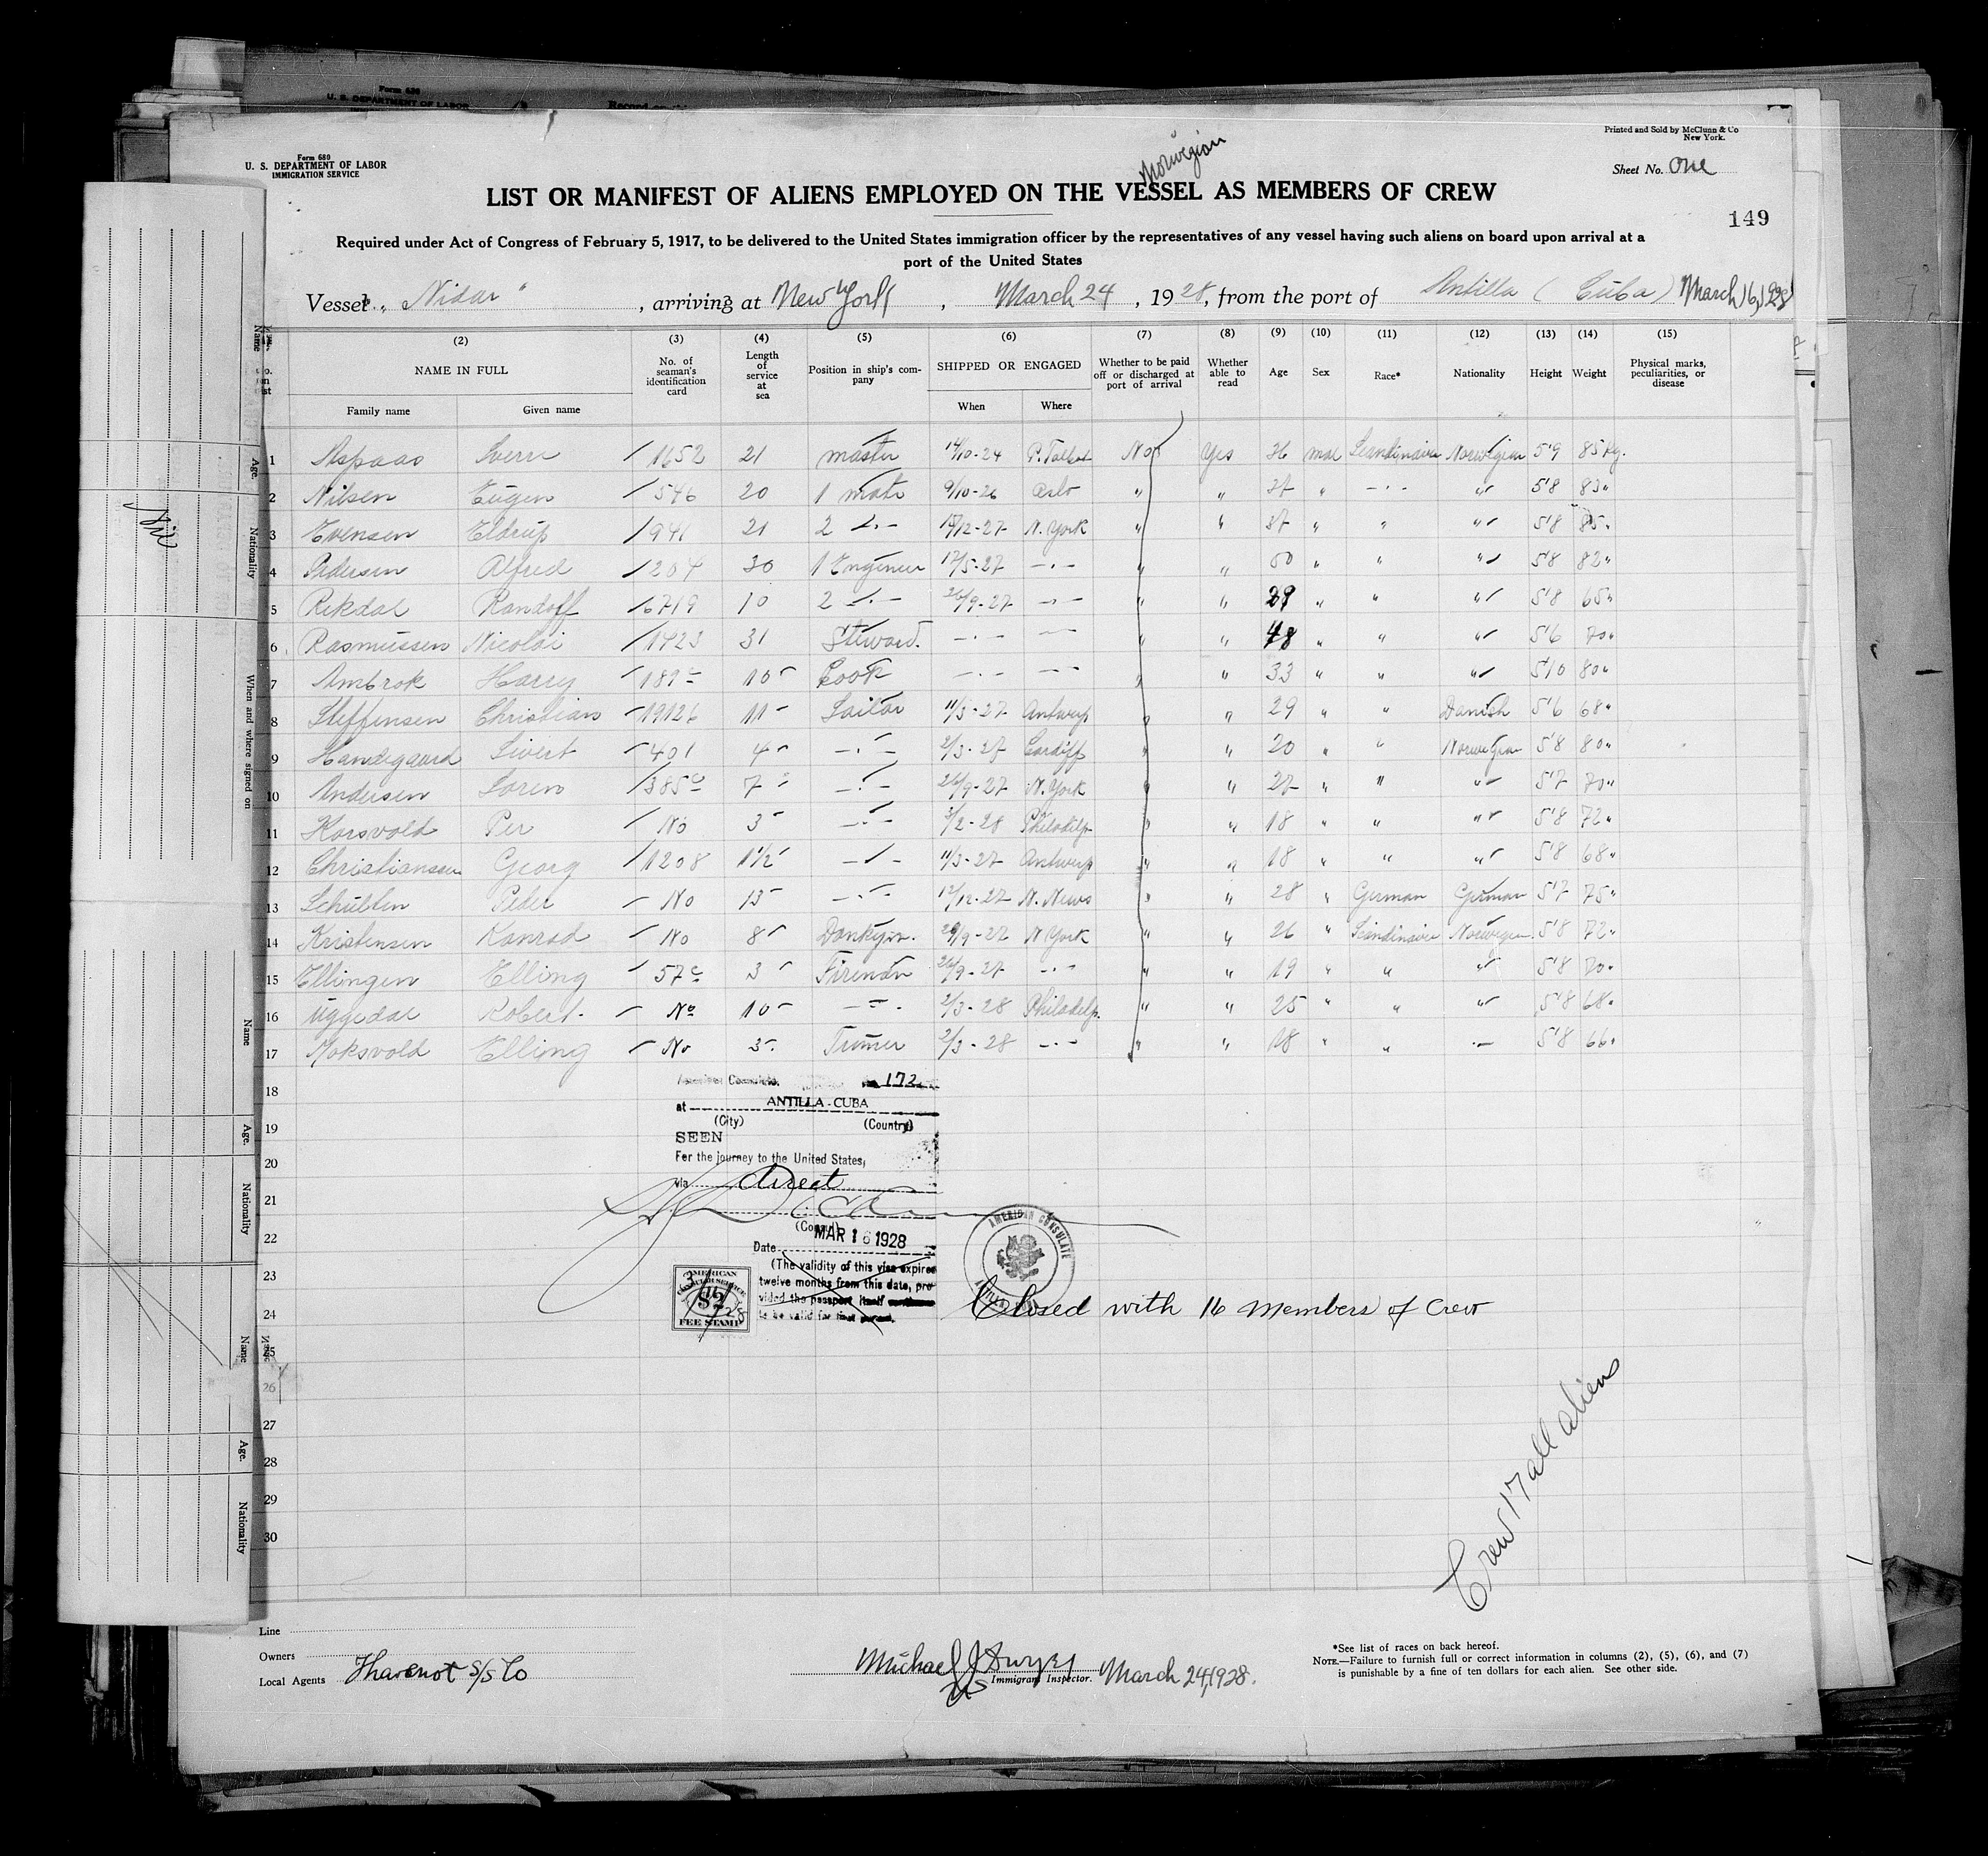 Form 680
U. S. DEPARTMENT OF LABOR
IMMIGRATION SERVICE
Printed and Sold by McClunn & Co
New York.
Sheet No. One
Norwegian
LIST OR MANIFEST OF ALIENS EMPLOYED ON THE VESSEL AS MEMBERS OF CREW
149
Required under Act of Congress of February 5, 1917, to be delivered to the United States immigration officer by the representatives of any vessel having such aliens on board upon arrival at a
port of the United States
Vessel "Nidar", arriving at New York, March 24, 1928, from the port of Antilla (Cuba) March 16, 1928
(2) (3) (4) (5) (6) (7) (8) (9) (10) (11) (12) (13) (14) (15)
NAME IN FULL
Family name Given name
No. of seaman's identification card
Length of service at sea
Position in ship's company
SHIPPED OR ENGAGED
When Where
Whether to be paid off or discharged at port of arrival
Whether able to read
Age
Sex
Race*
Nationality
Height
Weight
Physical marks, peculiarities, or disease
1 Aspaas Sverre 1652 21 master 14/10-24 P. Talbot No Yes 36 mal Scandinavian Norwegian 5'9 85 kg.
2 Nilsen Eugen 546 20 1 mate 9/10-26 Oslo " " 37 " -·- " 5'8 83 "
3 Evensen Eldrup 941 21 2 -·- 15/12-27 N. York " " 37 " " " 5'8 85 "
4 Pedersen Alfred 204 30 1 Engineer 17/5-27 -·- " " 50 " " " 5'8 82 "
5 Rekdal Randolf 6719 10 2 -·- 26/9-27 -·- " " 29 " " " 5'8 65 "
6 Rasmussen Nicolai 1423 31 Steward. -·- -·- " " 48 " " " 5'6 70 "
7 Ambrok Harry 189 10 Cook -·- -·- " " 33 " " " 5'10 80 "
8 Steffensen Christian 19126 11 Sailor 11/3-27 Antwerp " " 29 " " Danish 5'6 68 "
9 Handegaard Sivert 401 4 -·- 2/3-27 Cardiff " " 20 " " Norwegian 5'8 80 "
10 Andersen Soren 385 7 -·- 26/9-27 N. York " " 27 " " " 5'7 70 "
11 Korsvold Per No 3 -·- 3/2-28 Philadelp. " " 18 " " " 5'8 72 "
12 Christianssen Georg 1208 1½ -·- 11/3-27 Antwerp " " 18 " " " 5'8 68 "
13 Peder No 13 -·- 17/12-27 N. News " " 28 " German German 5'7 75 "
14 Kristensen Konrad No 8 Donkym. 26/9-27 N York " " 26 " Scandinavian Norwegian 5'8 72 "
15 Ellingen Elling 57 3 Fireman 26/9-27 -·- " " 19 " " " 5'8 70 "
16 Uggedal Robert. No 10 -·- 2/3-28 Philadelp. " " 25 " " " 5'8 68 "
17 Elling No 3 Trimer 2/3-28 -·- " " 18 " " -·- 5'8 66 "
18
19
20
21
22
23
24
25
26
27
28
29
30
American Consulate. No 172
at ANTILLA - CUBA
(City) (Country)
SEEN
For the journey to the United States,
via direct
(Consul)
Date MAR 16 1928
(The validity of this visa expires
twelve months from this date, pro-
vided the passport itself continues
to be valid for that period.
AMERICAN
CONSULAR SERVICE
$2
FEE STAMP
3/16/1928
AMERICAN CONSULATE
Closed with 16 members of crew
Crew 17 all aliens
Line
Owners
Local Agents S/S Co
Michael J
Immigrant Inspector.
March 24, 1928.
*See list of races on back hereof.
NOTE.—Failure to furnish full or correct information in columns (2), (5), (6), and (7)
is punishable by a fine of ten dollars for each alien. See other side.
Name
Age.
Nationality
When and where signed on
Name
Age.
Nationality
Name
Age.
Nationality
Nil